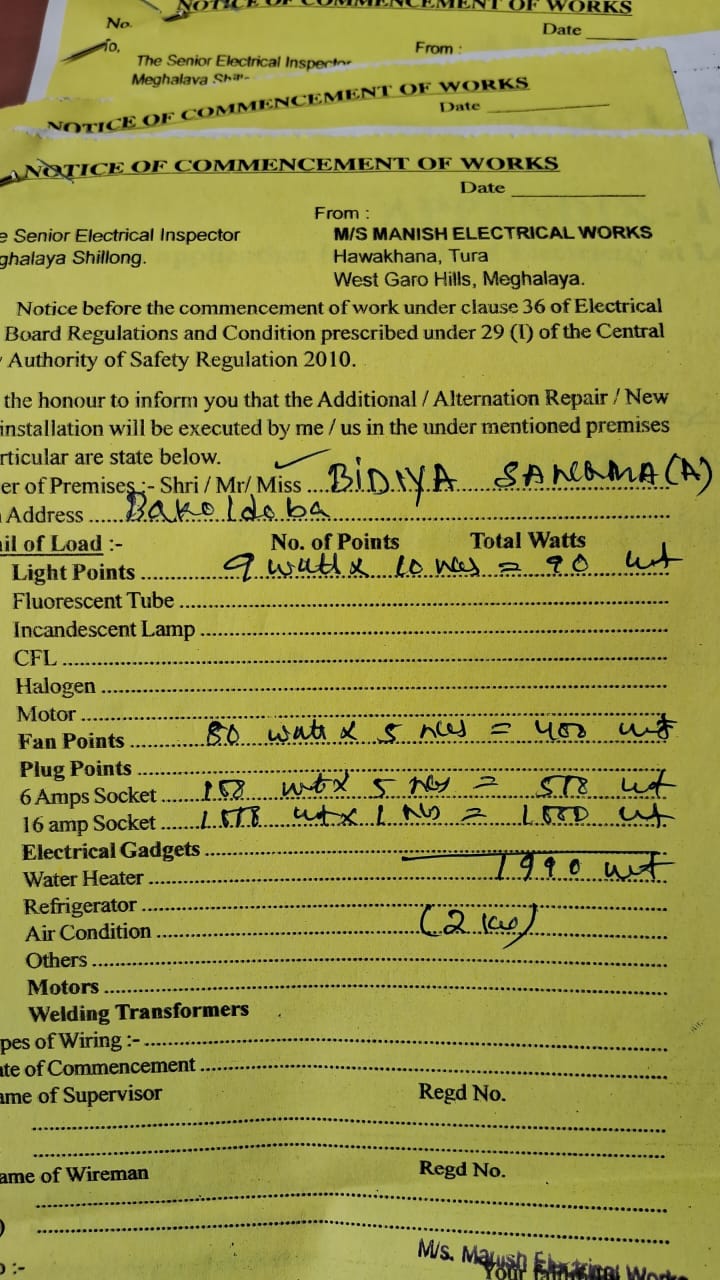 NOTICE OF COMMENCEMENT OF WORKS
No.
Date
To,
From :
The Senior Electrical Inspector
Meghalaya
NOTICE OF COMMENCEMENT OF WORKS
Date
NOTICE OF COMMENCEMENT OF WORKS
Date
From :
e Senior Electrical Inspector
M/S MANISH ELECTRICAL WORKS
ghalaya Shillong.
Hawakhana, Tura
West Garo Hills, Meghalaya.
Notice before the commencement of work under clause 36 of Electrical
Board Regulations and Condition prescribed under 29 (I) of the Central
Authority of Safety Regulation 2010.
the honour to inform you that the Additional / Alternation Repair / New
installation will be executed by me / us in the under mentioned premises
rticular are state below.
er of Premises :- Shri / Mr/ Miss BIDIYA SANGMA (A)
Address Bakoldoba
ail of Load :- No. of Points Total Watts
Light Points 9 watt x 10 nos = 90 wt
Fluorescent Tube
Incandescent Lamp
CFL
Halogen
Motor
Fan Points 80 watt x 5 nos = 400 wt
Plug Points
6 Amps Socket 100 wt x 5 nos = 500 wt
16 amp Socket 1000 wt x 1 No = 1000 wt
Electrical Gadgets
Water Heater 1990 wt
Refrigerator
Air Condition (2 kw)
Others
Motors
Welding Transformers
pes of Wiring :-
ate of Commencement
ame of Supervisor Regd No.
ame of Wireman Regd No.
)
:-
M/s. Manish Electrical Works
Your